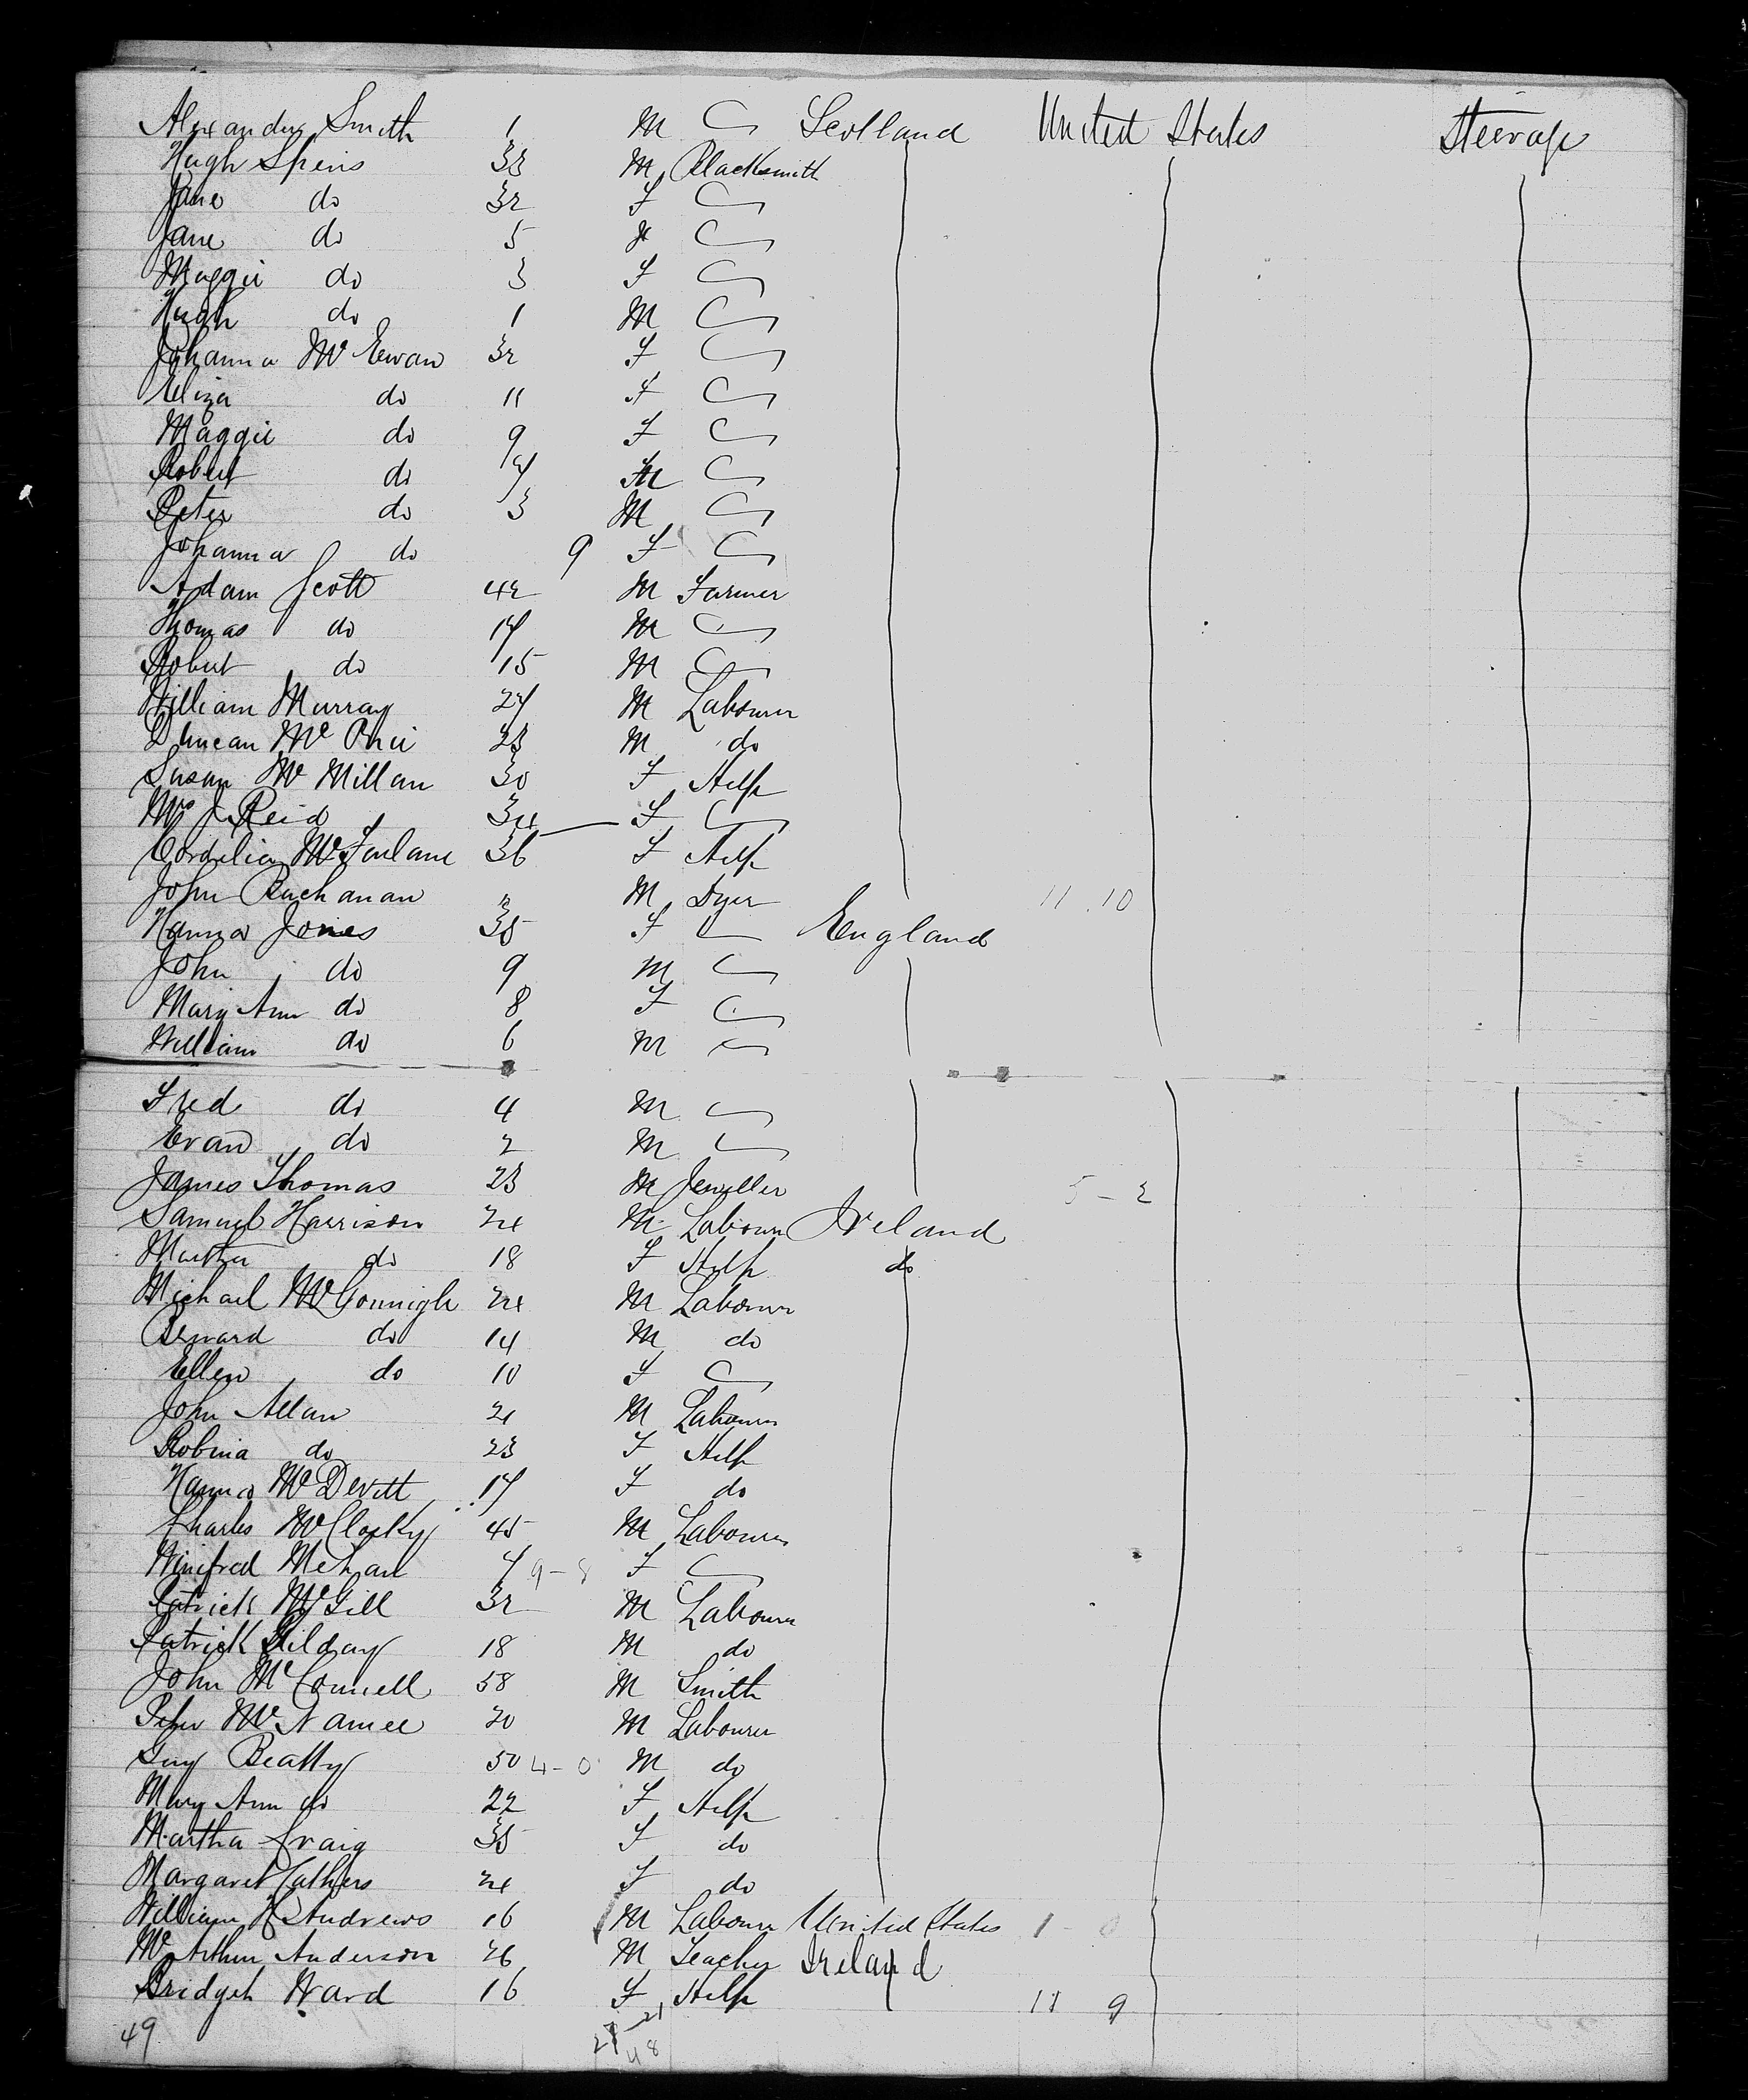 Alexander Smith 1 M Scotland United States Steerage
Hugh Speirs 33 M Blacksmith
Jane do 32 F
Jane do 5 F
Maggie do 3 F
Hugh do 1 M
Johanna Mc Ewan 32 F
Eliza do 11 F
Maggie do 9 F
Robert do 7 M
Peter do 3 M
Johanna do 9 F
Adam Scott 42 M Farmer
Thomas do 17 M
Robert do 15 M
William Murray 27 M Labourer
Duncan Mc Phie 23 M do
Susan Mc Millan 30 F Help
Mrs J Reid 34 F
Cordelia McFarlane 36 F Help
John Buchanan M Dyer 11 10
Hanna Jones 35 F England
John do 9 M
Mary Ann do 8 F
William do 6 M
Fred do 4 M
Evan do 2 M
James Thomas 23 M Jeweller 5 - 2
Samuel Harrison 24 M Labourer Ireland
Martha do 18 F Help do
Michael McGonnigle 24 M Labourer
Bernard do 14 M do
Ellen do 10 F
John Allan 21 M Labourer
Robina do 23 F Help
Hanna McDevitt 17 F do
Charles McClosky 45 M Labourer
Winifred Mehan 7 9 - 8 F
Patrick McGill 32 M Labourer
Patrick Kilday 18 M do
John McConnell 58 M Smith
Peter McNamee 20 M Labourer
Guy Beatty 50 4 - 0 M do
Mary Ann do 22 F Help
Martha Craig 35 F do
Margaret Cathers 24 F do
William H Andrews 16 M Labourer United States 1 - 0
Mr Arthur Anderson 26 M Teacher Ireland
Bridget Ward 16 F Help 11 9
49 27 - 21
48